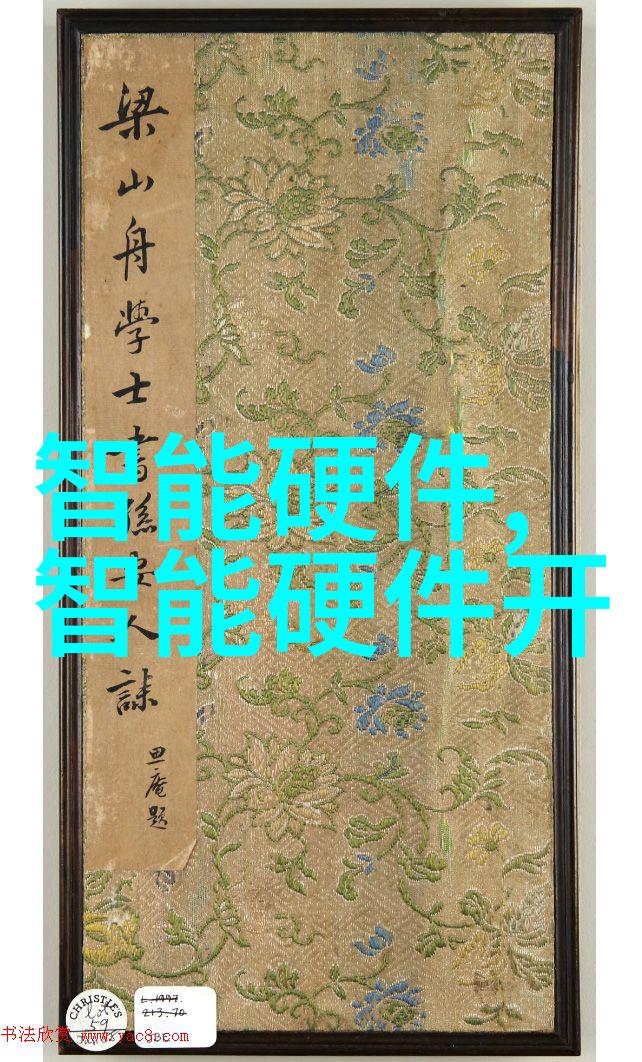 梁山舟學士書孫安人誄
庵題
智能硬件,
智能硬件开
CHRISTIE'S
lot
59
L.1997.
213.70
书法欣赏 www.yac8.com